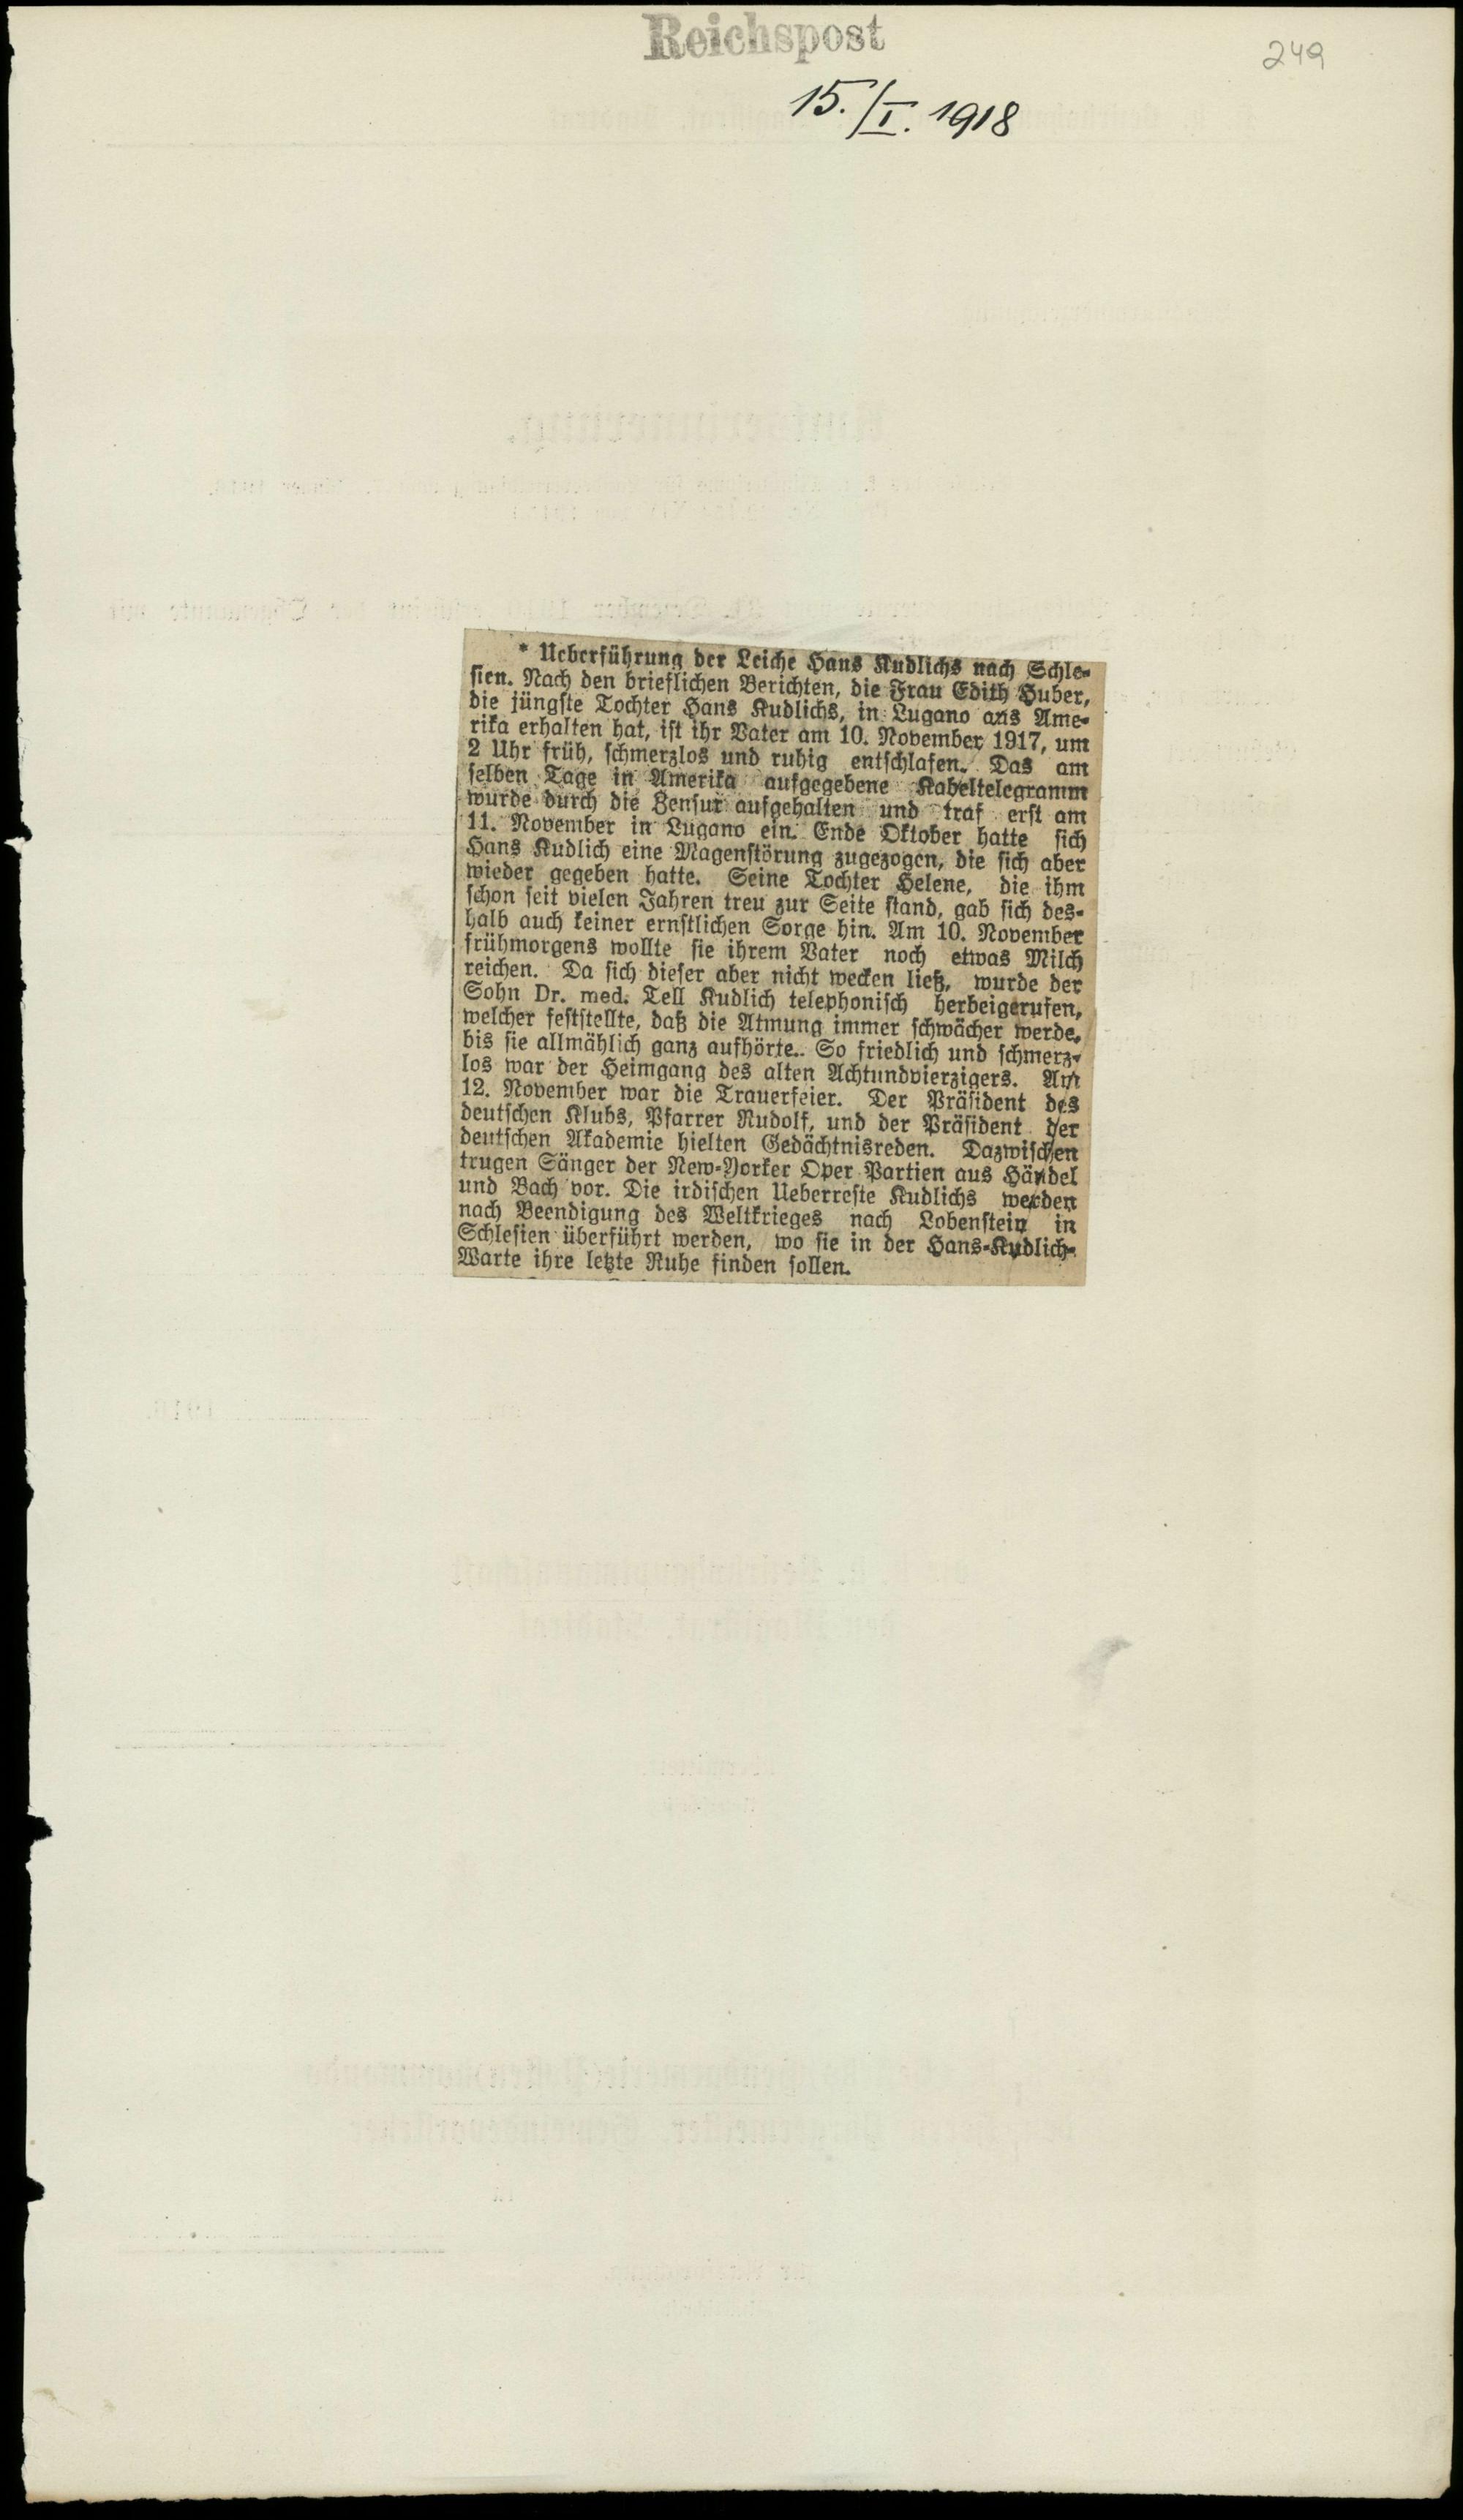 Reichspost
249
15./I. 1918
* Ueberführung der Leiche Hans Kudlichs nach Schle-
sien. Nach den brieflichen Berichten, die Frau Edith Huber,
die jüngste Tochter Hans Kudlichs, in Lugano aus Ame-
rika erhalten hat, ist ihr Vater am 10. November 1917, um
2 Uhr früh, schmerzlos und ruhig entschlafen. Das am
selben Tage in Amerika aufgegebene Kabeltelegramm
wurde durch die Zensur aufgehalten und traf erst am
11. November in Lugano ein. Ende Oktober hatte sich
Hans Kudlich eine Magenstörung zugezogen, die sich aber
wieder gegeben hatte. Seine Tochter Helene, die ihm
schon seit vielen Jahren treu zur Seite stand, gab sich des-
halb auch keiner ernstlichen Sorge hin. Am 10. November
frühmorgens wollte sie ihrem Vater noch etwas Milch
reichen. Da sich dieser aber nicht wecken ließ, wurde der
Sohn Dr. med. Tell Kudlich telephonisch herbeigerufen,
welcher feststellte, daß die Atmung immer schwächer werde,
bis sie allmählich ganz aufhörte.. So friedlich und schmerz-
los war der Heimgang des alten Achtundvierzigers. Am
12. November war die Trauerfeier. Der Präsident des
deutschen Klubs, Pfarrer Rudolf, und der Präsident der
deutschen Akademie hielten Gedächtnisreden. Dazwischen
trugen Sänger der New-Yorker Oper Partien aus Händel
und Bach vor. Die irdischen Ueberreste Kudlichs werden
nach Beendigung des Weltkrieges nach Lobenstein in
Schlesien überführt werden, wo sie in der Hans-Kudlich-
Warte ihre letzte Ruhe finden sollen.